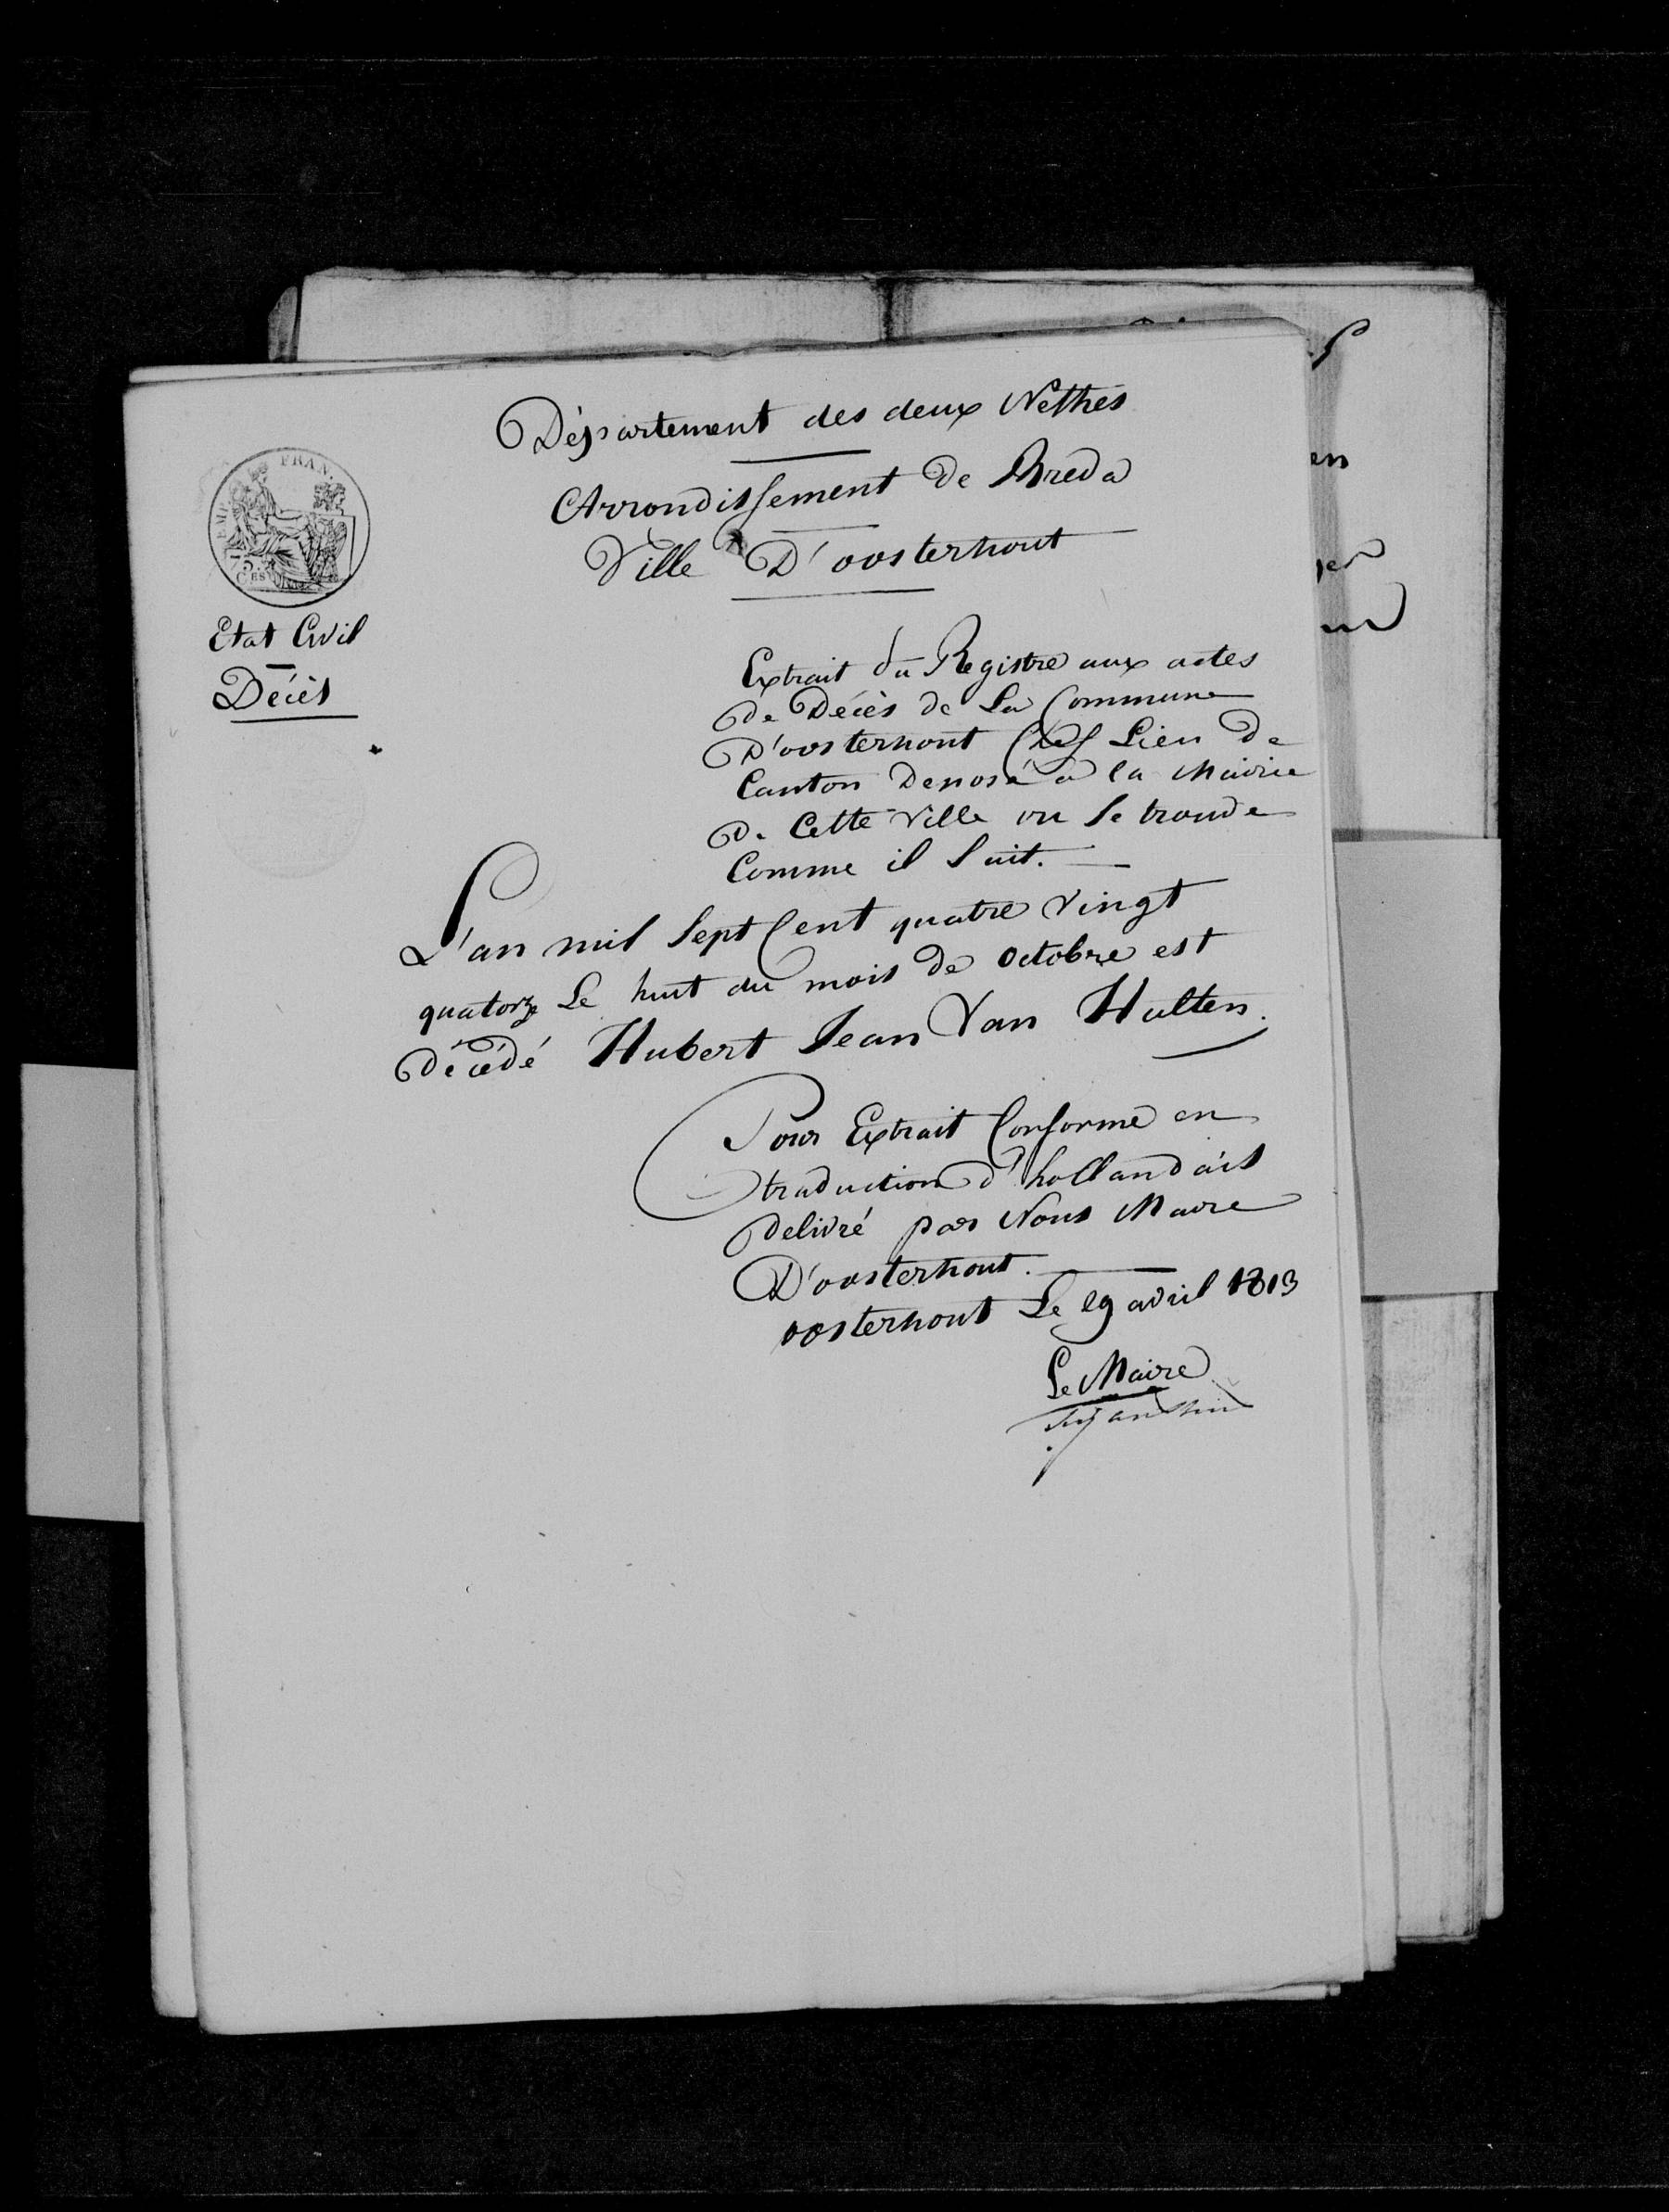 Département des deux Nethes
Arrondissement de Breda
Ville D'oosterhout
FRAN.
EMP
75.
C.ES
Etat Civil
Décès
Extrait du Registre aux actes
de Décès de La Commune
D'oosterhout Chef Lieu de
Canton Deposé a la Mairie
de Cette Ville ou Se trouve
Comme il Suit.
L'an mil Sept Cent quatre Vingt
quatorze Le huit du mois de Octobre est
décédé Hubert Jean Van Hulten.
Pour Extrait Conforme en
traduction d'hollandais
delivré par Nous Maire
D'oosterhout.
oosterhout Le 29 avril 1813
Le Maire
en